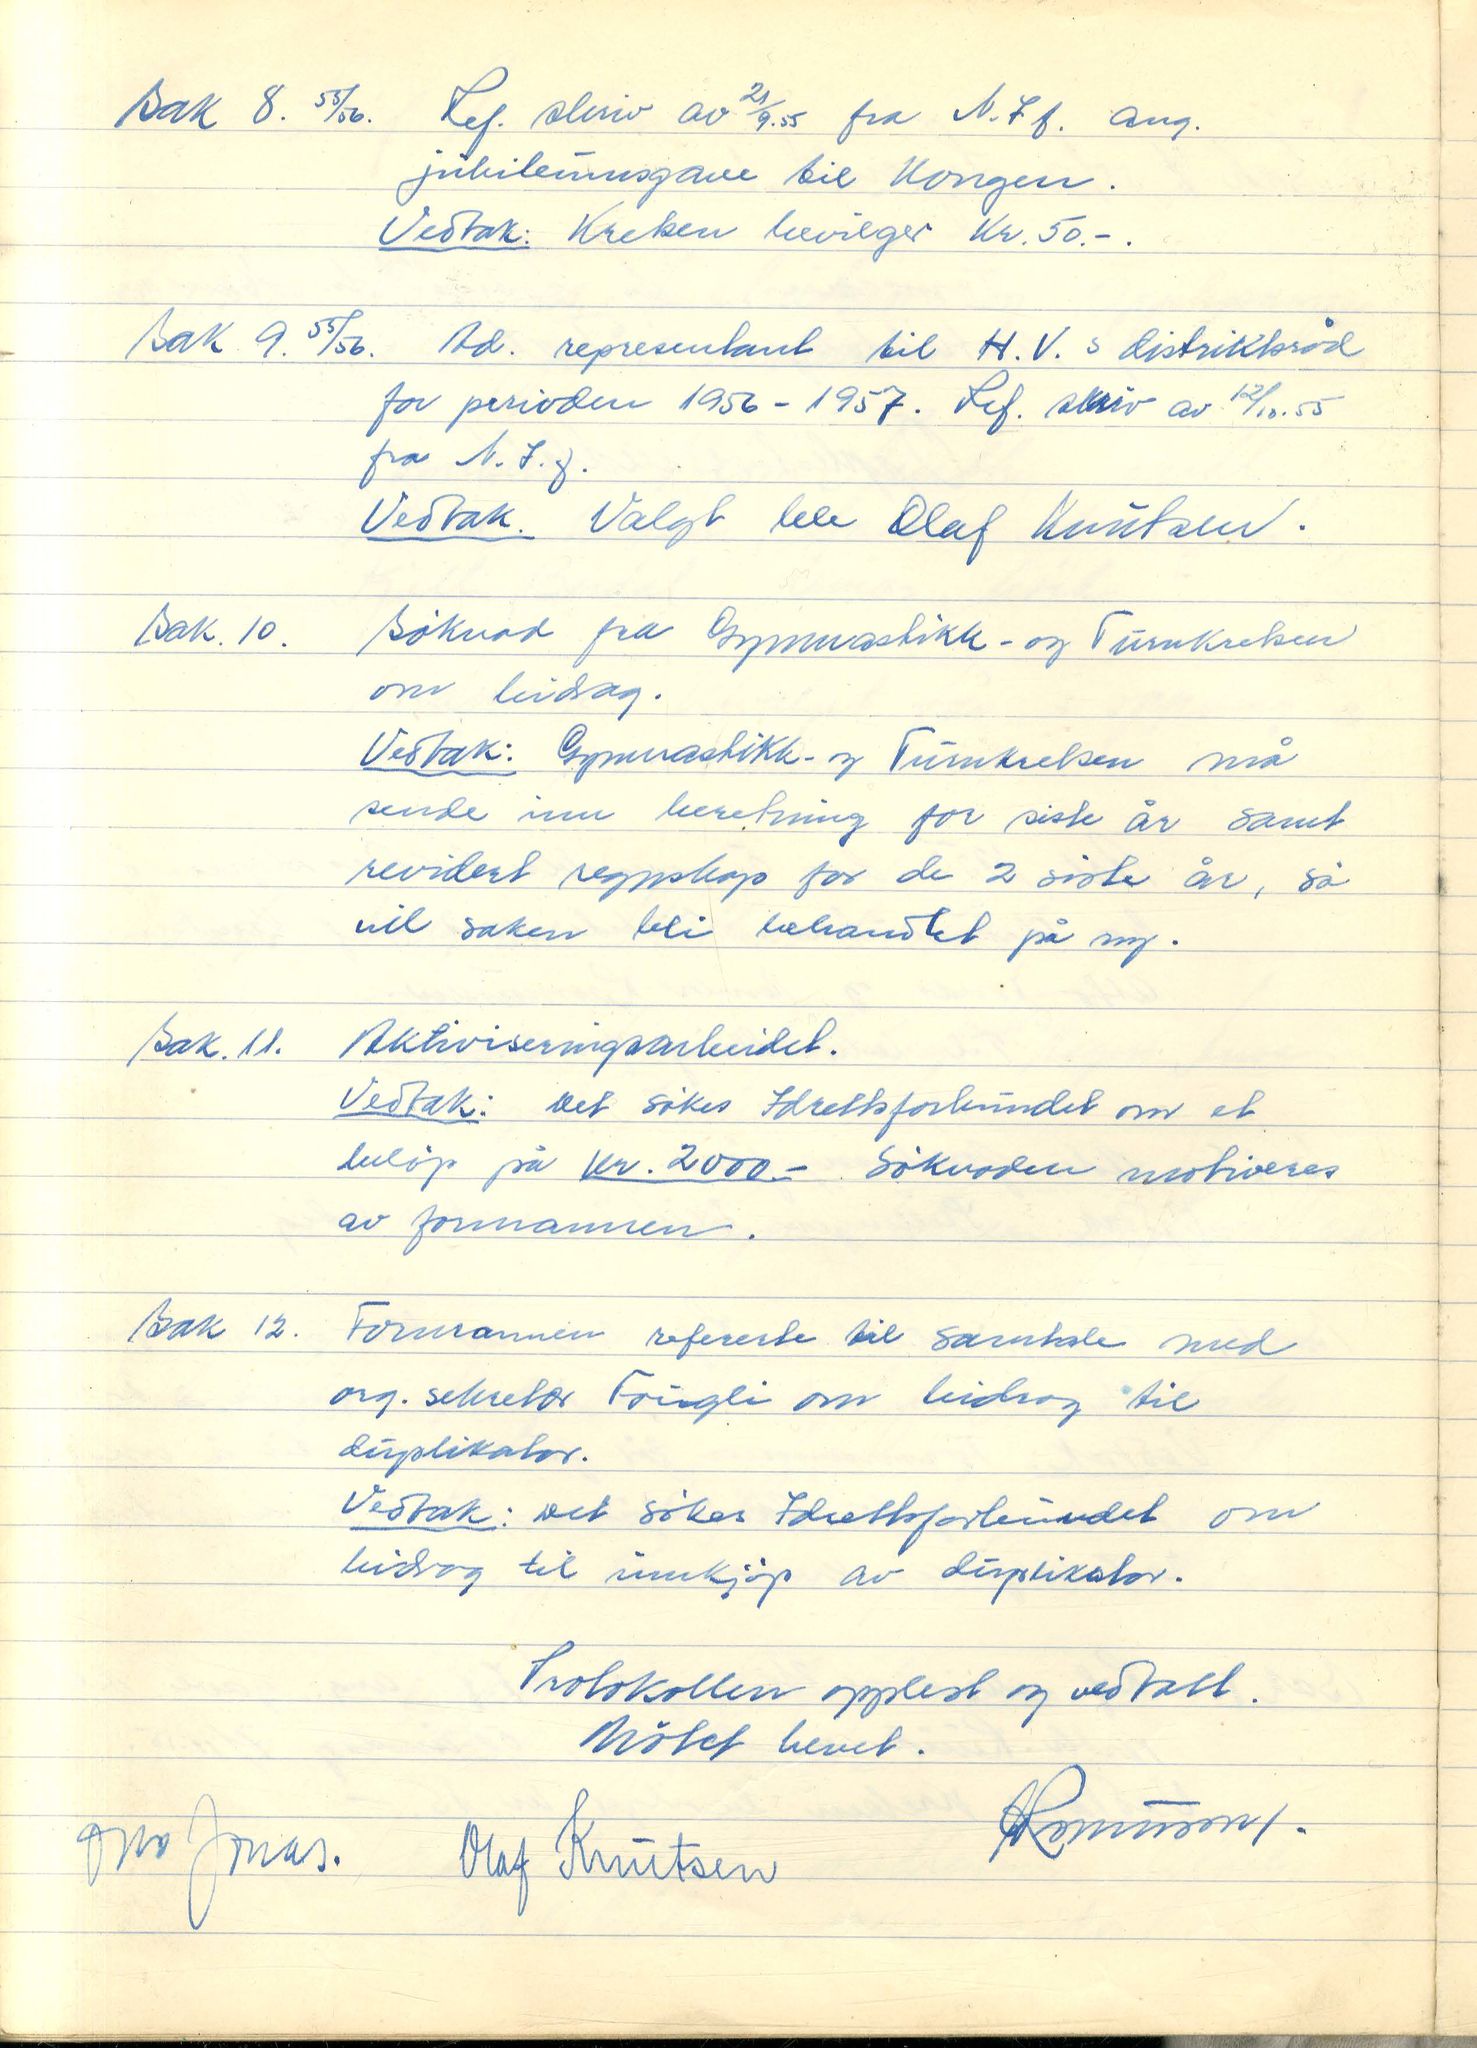 Sak 8. 55/56. Ref. skriv av 21/9.55 fra N.I.f. ang.
jubileumsgave til Kongen.
Vedtak: Kretsen bevilger Kr. 50.-.
Sak 9. 55/56. Ad. representant til H.V.s distriktsråd
for perioden 1956-1957. Ref. skriv av 12/10.55
fra N.I.f.
Vedtak. Valgt ble Olaf Knutsen.
Sak. 10. Söknad fra Gymnastikk- og Turnkretsen
om bidrag.
Vedtak: Gymnastikk- og Turnkretsen må
sende inn beretning for siste år samt
revidert regnskap for de 2 siste år, så
vil saken bli behandlet på ny.
Sak. 11. Aktiviseringsarbeidet.
Vedtak: Det sökes Idrettsforbundet om et
belöp på Kr. 2000.- Söknaden motiveres
av formannen.
Sak 12. Formannen refererte til samtale med
org. sekretær Fougli om bidrag til
duplikator.
Vedtak: Det sökes Idrettsforbundet om
bidrag til innkjöp av duplikator.
Protokollen opplest og vedtatt.
Mötet hevet.
Jonas. Olaf Knutsen